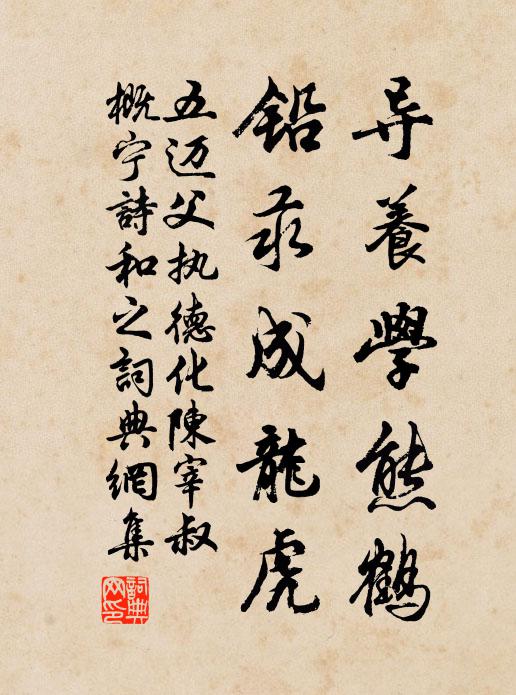 导養學熊鶴
铅汞成龍虎
五迈父执德化陳宰叔
概宁詩和之詞典網集
詞典網印